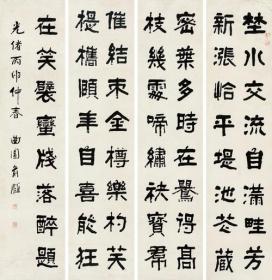 埜水交流自滿畦芳
新漲恰平堤池花藏
密葉多時在鶯得高
枝幾處啼繡袂寶帬
催結束金樽樂杓笑
提攜頤年自喜能狂
在笑襞蠻牋落醉題
光緒丙申仲春 曲園俞樾